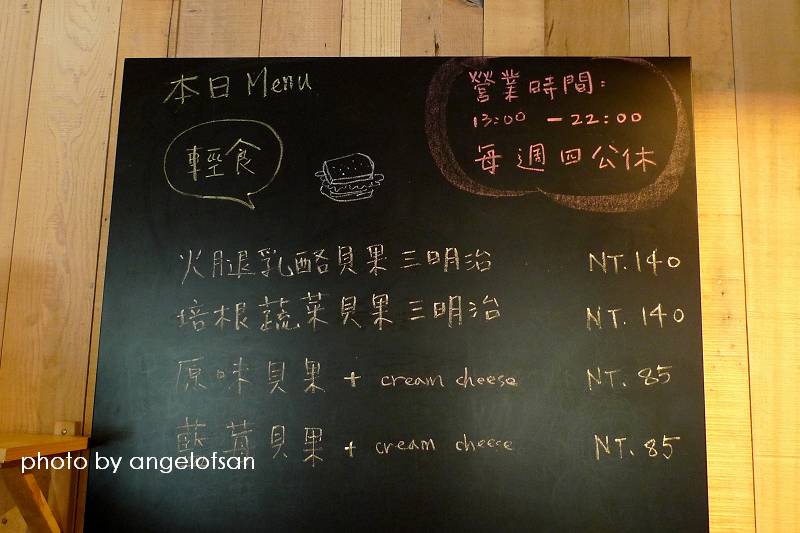 本日 Menu
營業時間:
13:00 - 22:00
每週四公休
輕食
火腿乳酪貝果三明治 NT.140
培根蔬菜貝果三明治 NT.140
原味貝果 + cream cheese NT.85
藍莓貝果 + cream cheese NT.85
photo by angelofsan